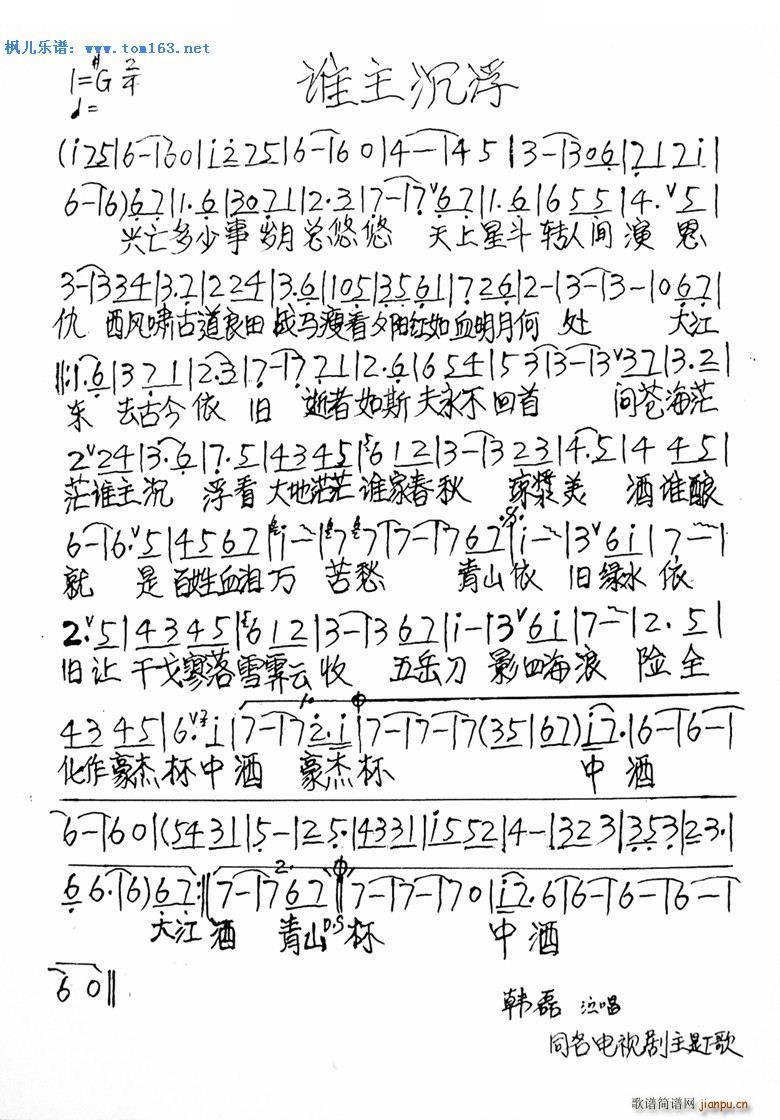 枫儿乐谱：www.tom163.net
1=#G 2/4
谁主沉浮
♩=
(i 7 5 | 6 - | 6 0 | i 2 7 5 | 6 - | 6 0 | 4 - | 4 5 | 3 - | 3 0 6 | 7 1 7 i |
6 - | 6 ) 6 7 | 1. 6 | 3 0 7 1 | 2. 3 | 7 - | 7 ∨ 6 7 | 1. 6 | 6 5 5 | 4. ∨ 5 |
兴亡多少事 岁月总悠悠 天上星斗 转人间 演 恩
3 - | 3 3 4 | 3. 7 | 2 2 4 | 3. 6 | 1 0 5 | 3 5 6 1 | 7 2 6 | 2 - | 3 - | 3 - | 0 6 7 |
仇 西风啸古道良田 战马瘦看夕阳红如血明月何 处 大江
‖: 1. 6 | 3 7 1 | 2. 3 | 7 - | 7 7 1 | 2. 6 | 6 5 4 | 5 3 | 3 - | 3 ∨ 3 7 | 3. 2 |
东 去古今依 旧 逝者如斯 夫永不 回首 问苍海茫
2 ∨ 2 4 | 3. 6 | 7. 5 | 4 3 4 5 | 5 6 1 2 | 3 - | 3 2 3 | 4. 5 | 4 4 5 |
茫谁主沉 浮看 大地茫茫 谁家春秋 琼浆美 酒谁酿
6 - | 6. ∨ 5 | 4 5 6 7 | i - | 7 7 | 7 - | 7 6 7 | i - | 3 ∨ 6 i | 7 - |
就 是 百姓血泪 万 苦愁 青山依 旧绿水 依
2. ∨ 5 | 4 3 4 5 | 5 6 1 2 | 3 - | 3 6 7 | i - | 3 ∨ 6 i | 7 - | 2. 5 |
旧让 干戈寥落雪霁云 收 五岳刀 影四海浪 险全
4 3 4 5 | 6. ∨ i | 7 - | 7 2. i | 7 - | 7 - | 7 - | 7 (3 5 | 6 7) | i 7. | 6 - | 6 - |
化作豪杰杯中酒 豪杰杯 中 酒
6 - | 6 0 | (5 4 3 1 | 5 - | 2 5. | 4 3 3 1 | i 5 5 2 | 4 - | 3 2 3 | 3 5 3 | 2 3. |
6 6. | 6) 6 7 :‖ 7 - | 7 6 7 ‖ 7 - | 7 - | 7 0 | i 7. 6 | 6 - | 6 - | 6 - |
大江 酒 青山 D.S 杯 中 酒
6 0 ‖
韩磊 演唱
同名电视剧主题歌
歌谱简谱网
jianpu.cn